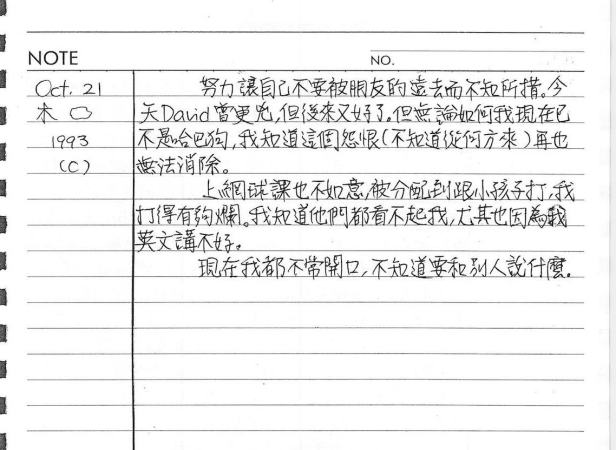 NOTE
NO.
Oct. 21
木
1993
(C)
努力讓自己不要被朋友的遠去而不知所措。今
天David更兇,但後來又好了。但無論如何我現在已
不是哈巴狗,我知道這個怨恨(不知道從何方來)再也
無法消除。
上網球課也不如意,被分配到跟小孩子打,我
打得有夠爛。我知道他們都看不起我,尤其也因為我
英文講不好。
現在我都不常開口,不知道要和別人說什麼.